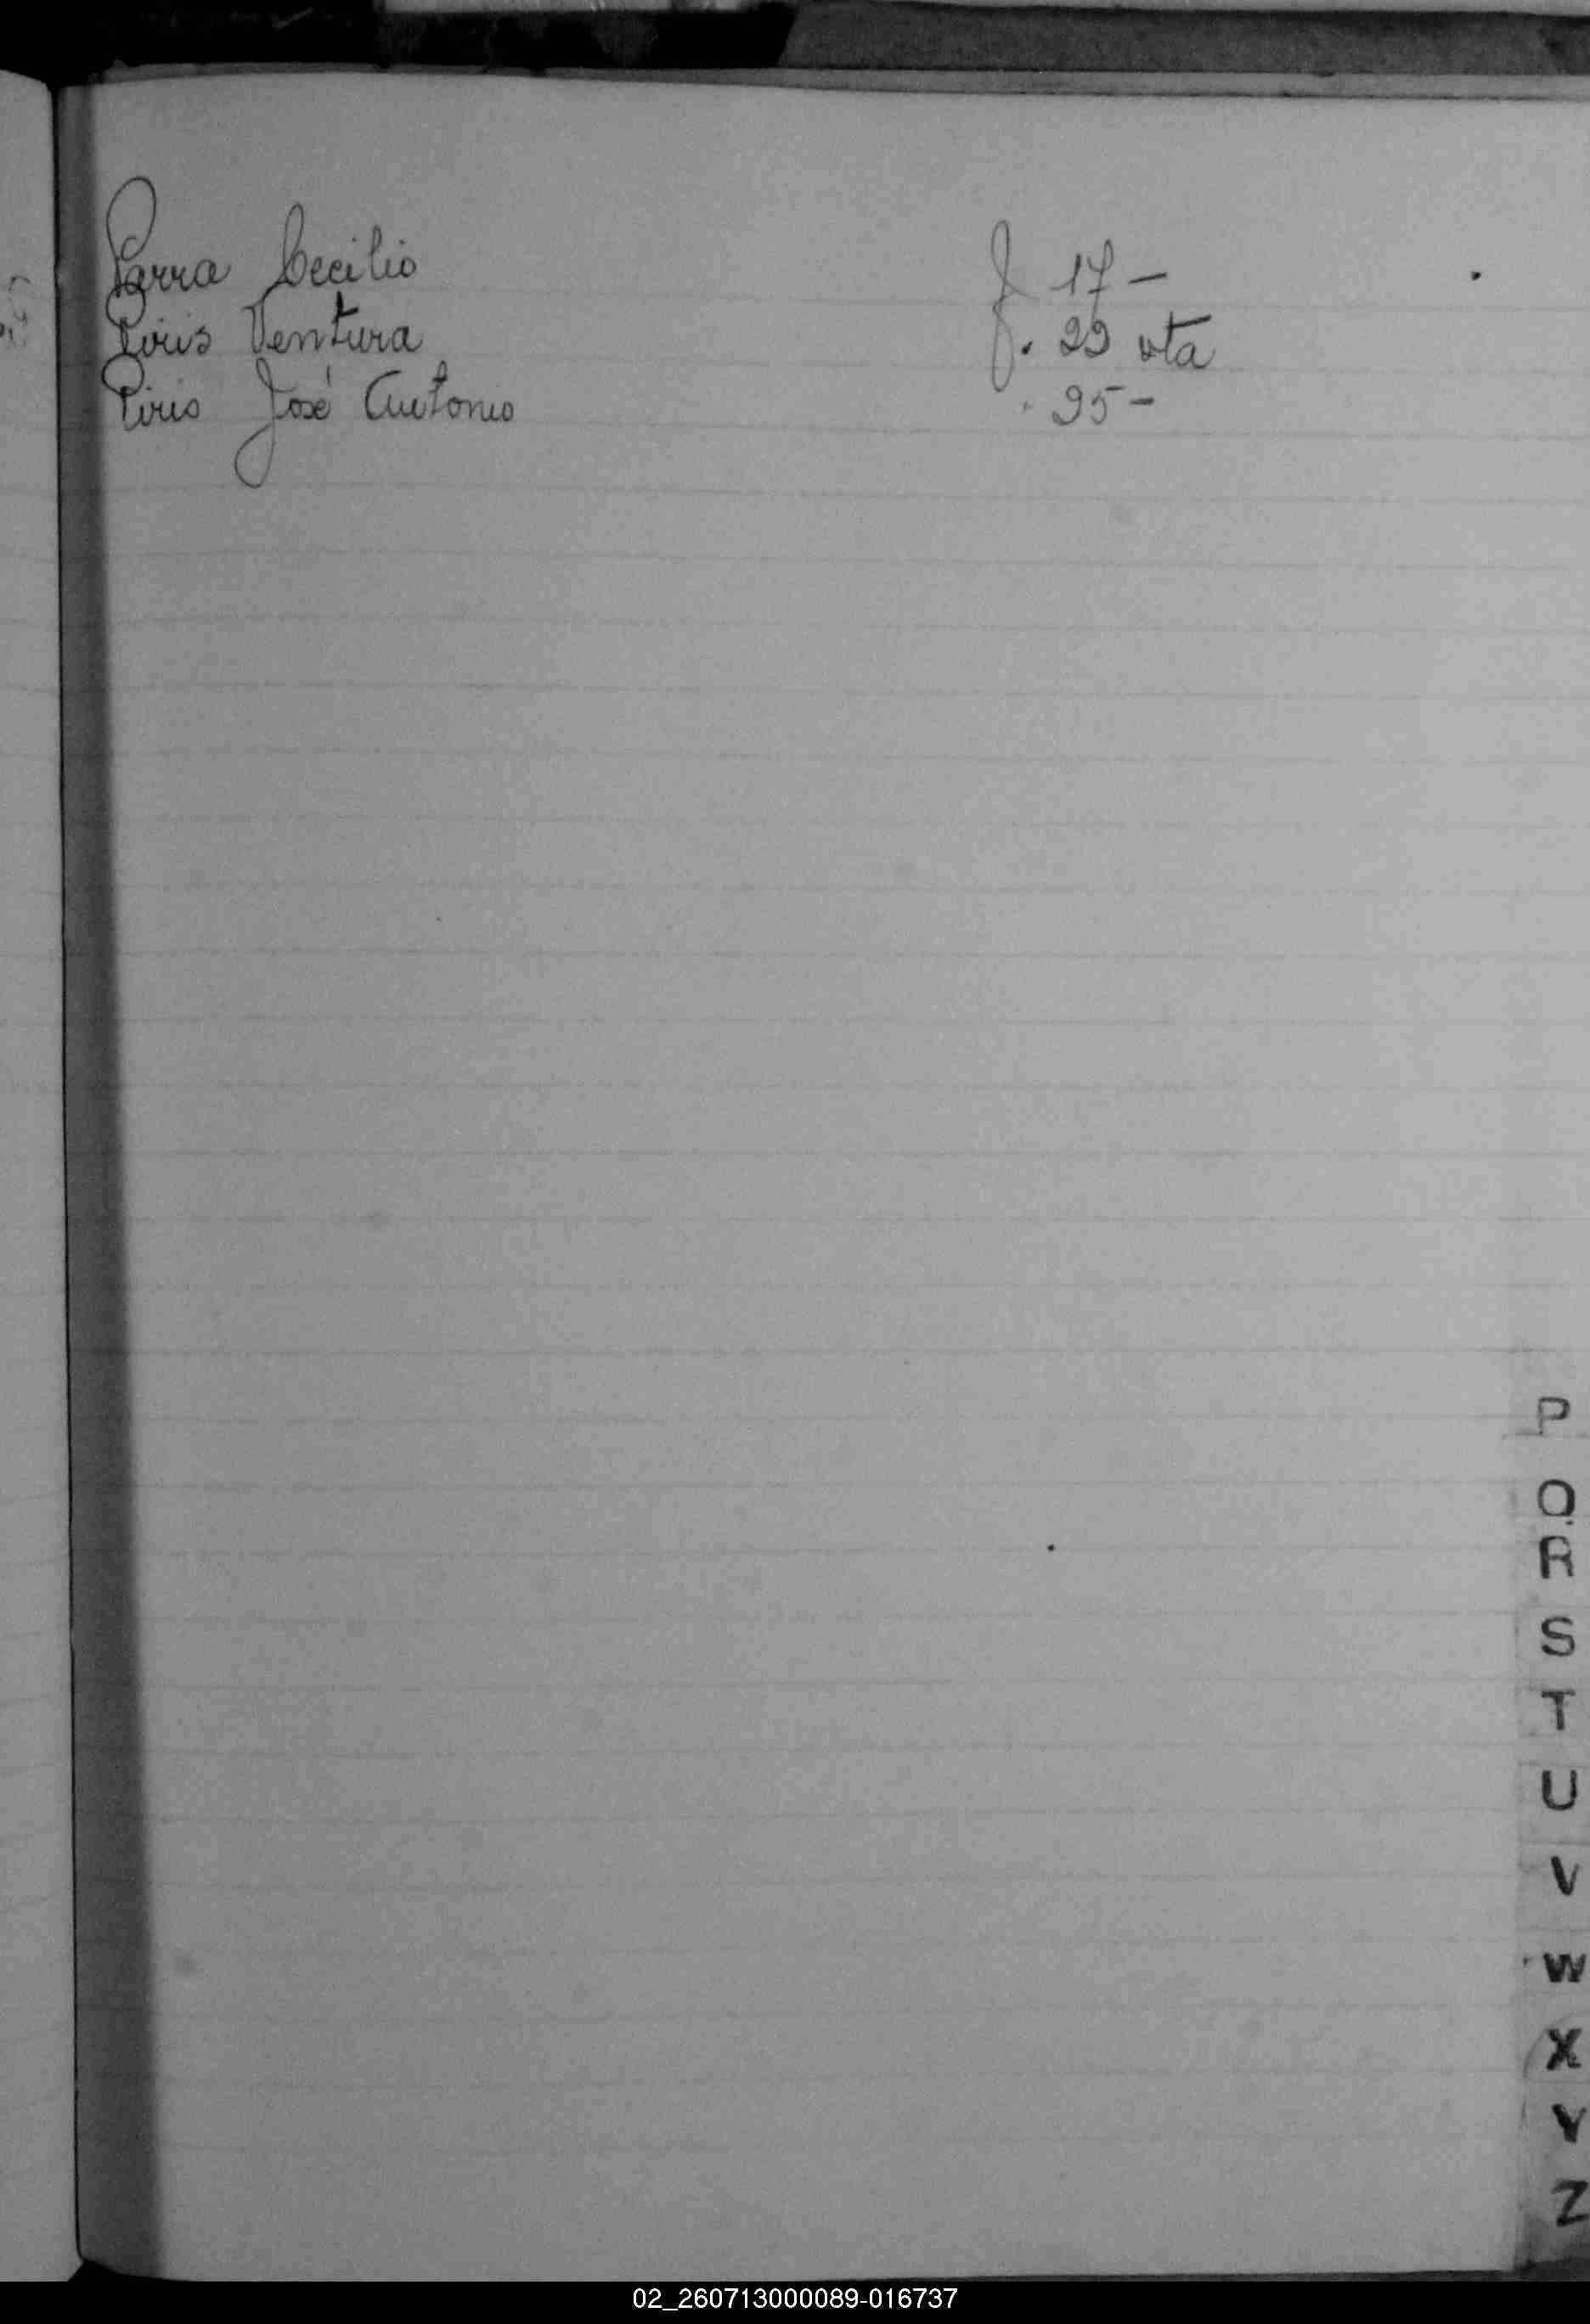 Parra Cecilio f. 17 -
Piris Ventura f. 29 vta
Piris José Antonio . 95 -
P
Q
R
S
T
U
V
W
X
Y
Z
02_260713000089-016737